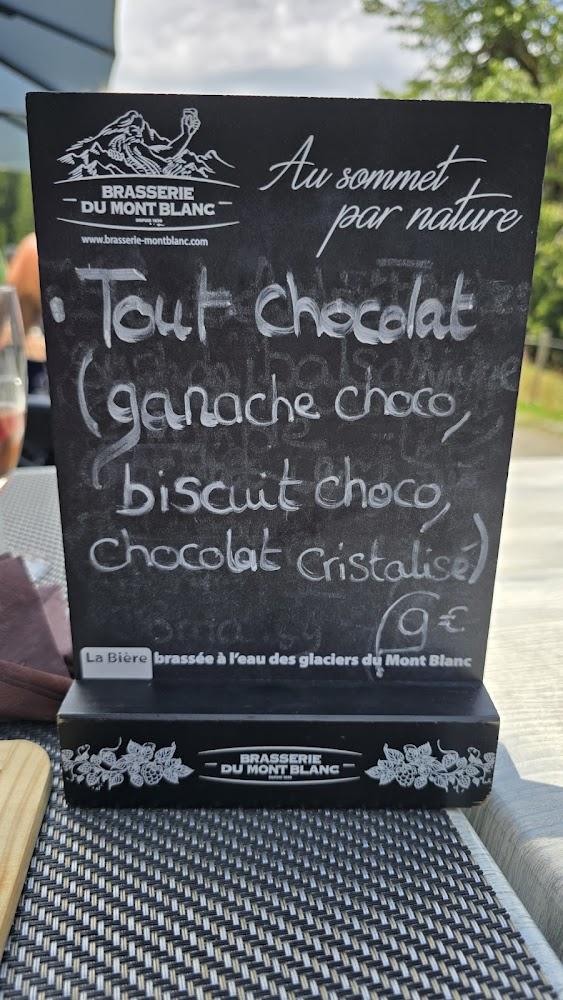 BRASSERIE
DU MONT BLANC
www.brasserie-montblanc.com
Au sommet
par nature
· Tout chocolat
(ganache choco,
biscuit choco,
chocolat cristalisé)
9€
La Bière brassée à l'eau des glaciers du Mont Blanc
BRASSERIE
DU MONT BLANC